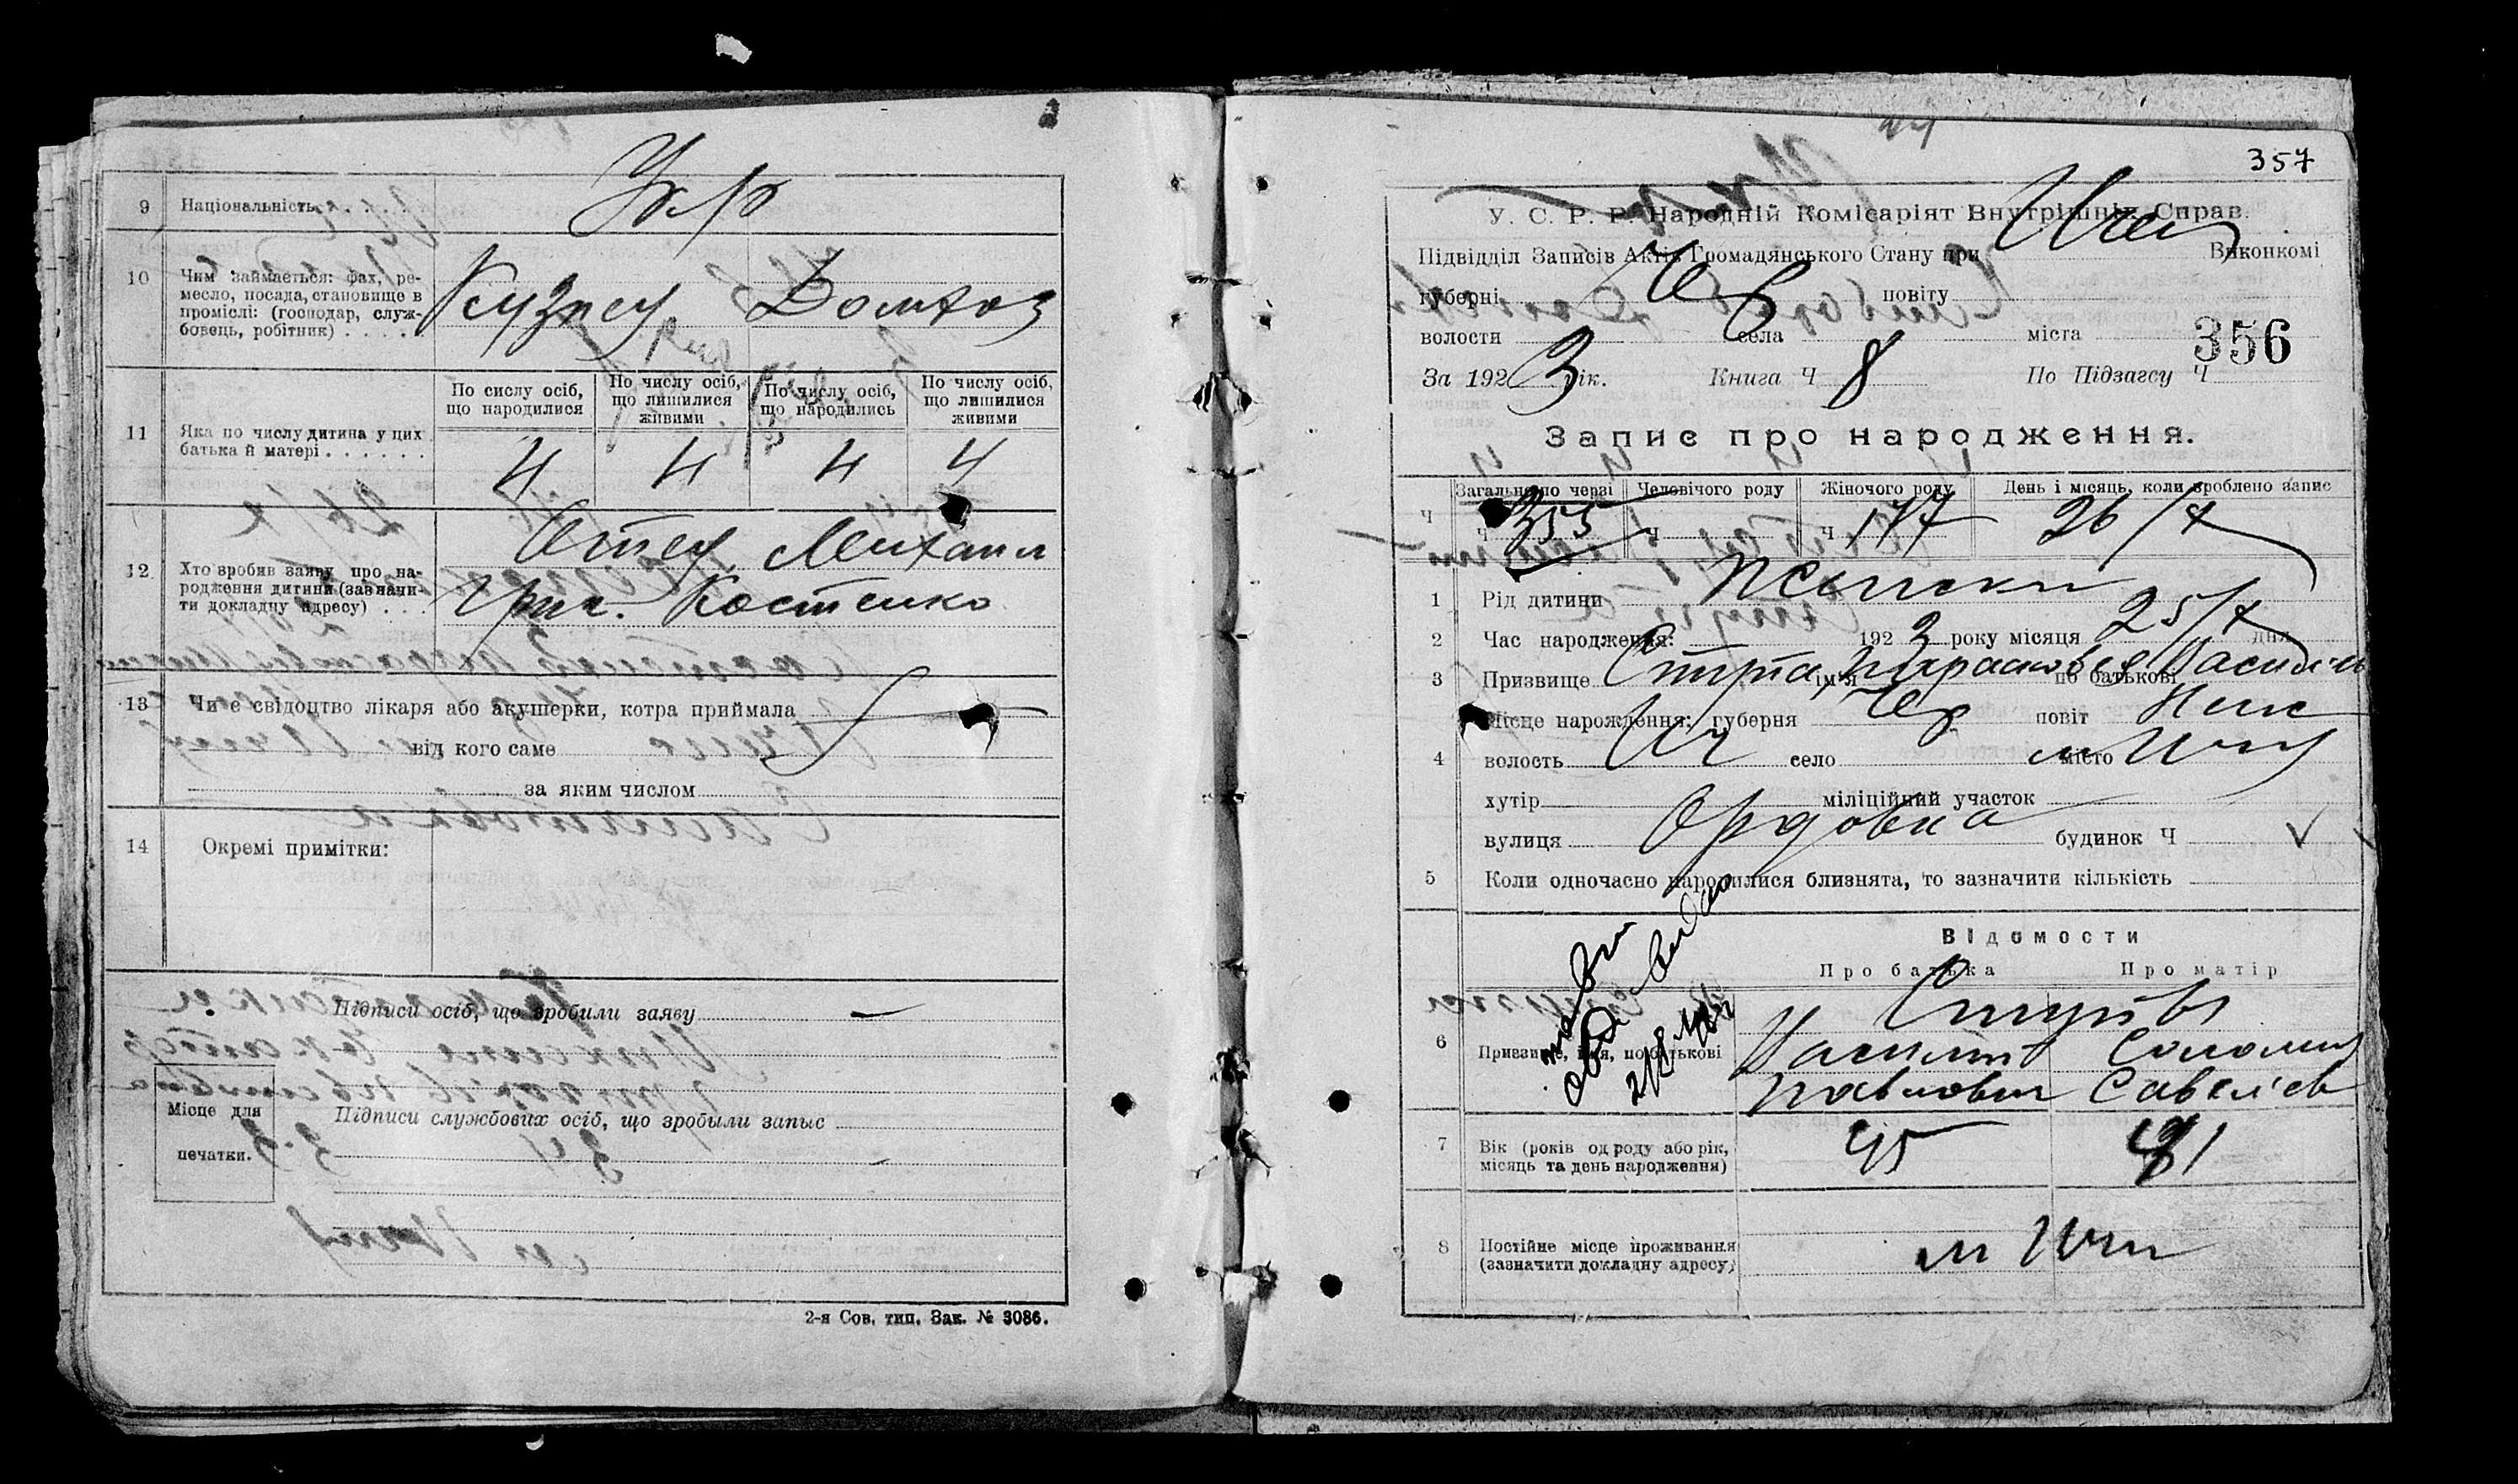 9 Національність. . . . . . Укр
10 Чим займається: фах, ре-
месло, посада, становище в
промислі: (господар, служ-
бовець, робітник) . . . . .
Кузнец Домхоз
11 Яка по числу дитина у цих
батька й матері . . . . . .
По сислу осіб,
що народилися
По числу осіб,
що лишилися
живими
По числу осіб,
що народились
По числу осіб,
що лишилися
живими
4 4 4 4
12 Хто зробив заяву про на-
родження дитини (зазначи-
ти докладну адресу) . . .
Отец Михаил
Григ. Костенко
13 Чи є свідоцтво лікаря або акушерки, котра приймала
від кого саме
за яким числом
14 Окремі примітки:
Підписи осіб, що зробили заяву —
Місце для
печатки.
Підписи службових осіб, що зробыли запыс
2-я Сов. тип. Зак. № 3086.
357
У. С. Р. Р. Народній Комісаріят Внутрішніх Справ.
Підвідділ Записів Актів Громадянського Стану при Виконкомі
губерні Чер повіту
волости села міста
356
За 1923 рік. Книга Ч 8 По Підзагсу Ч
Запис про народження.
Загально по черзі Человічого роду Жіночого роду День і місяць, коли зроблено запис
Ч Ч 355 Ч Ч 177 26/X
1 Рід дитини Женский
2 Час народження: 1923 року місяця 25/X дня
3 Призвище Ступа ім'я Парасковья по батькові Василів
4 Місце нарождення: губерня Чер повіт Неж
волость Ич село місто м Ичн
хутір міліційний участок
вулиця Ордовка будинок Ч
5 Коли одночасно народилися близнята, то зазначити кількість
Відомости
Про батька Про матір
6 Призвище, імя, по батькові
Василий Соломия
Павлович Савеліев
7 Вік (років од роду або рік,
місяць та день народження)
45 41
8 Постійне місце проживання
(зазначити докладну адресу)
м Ичн